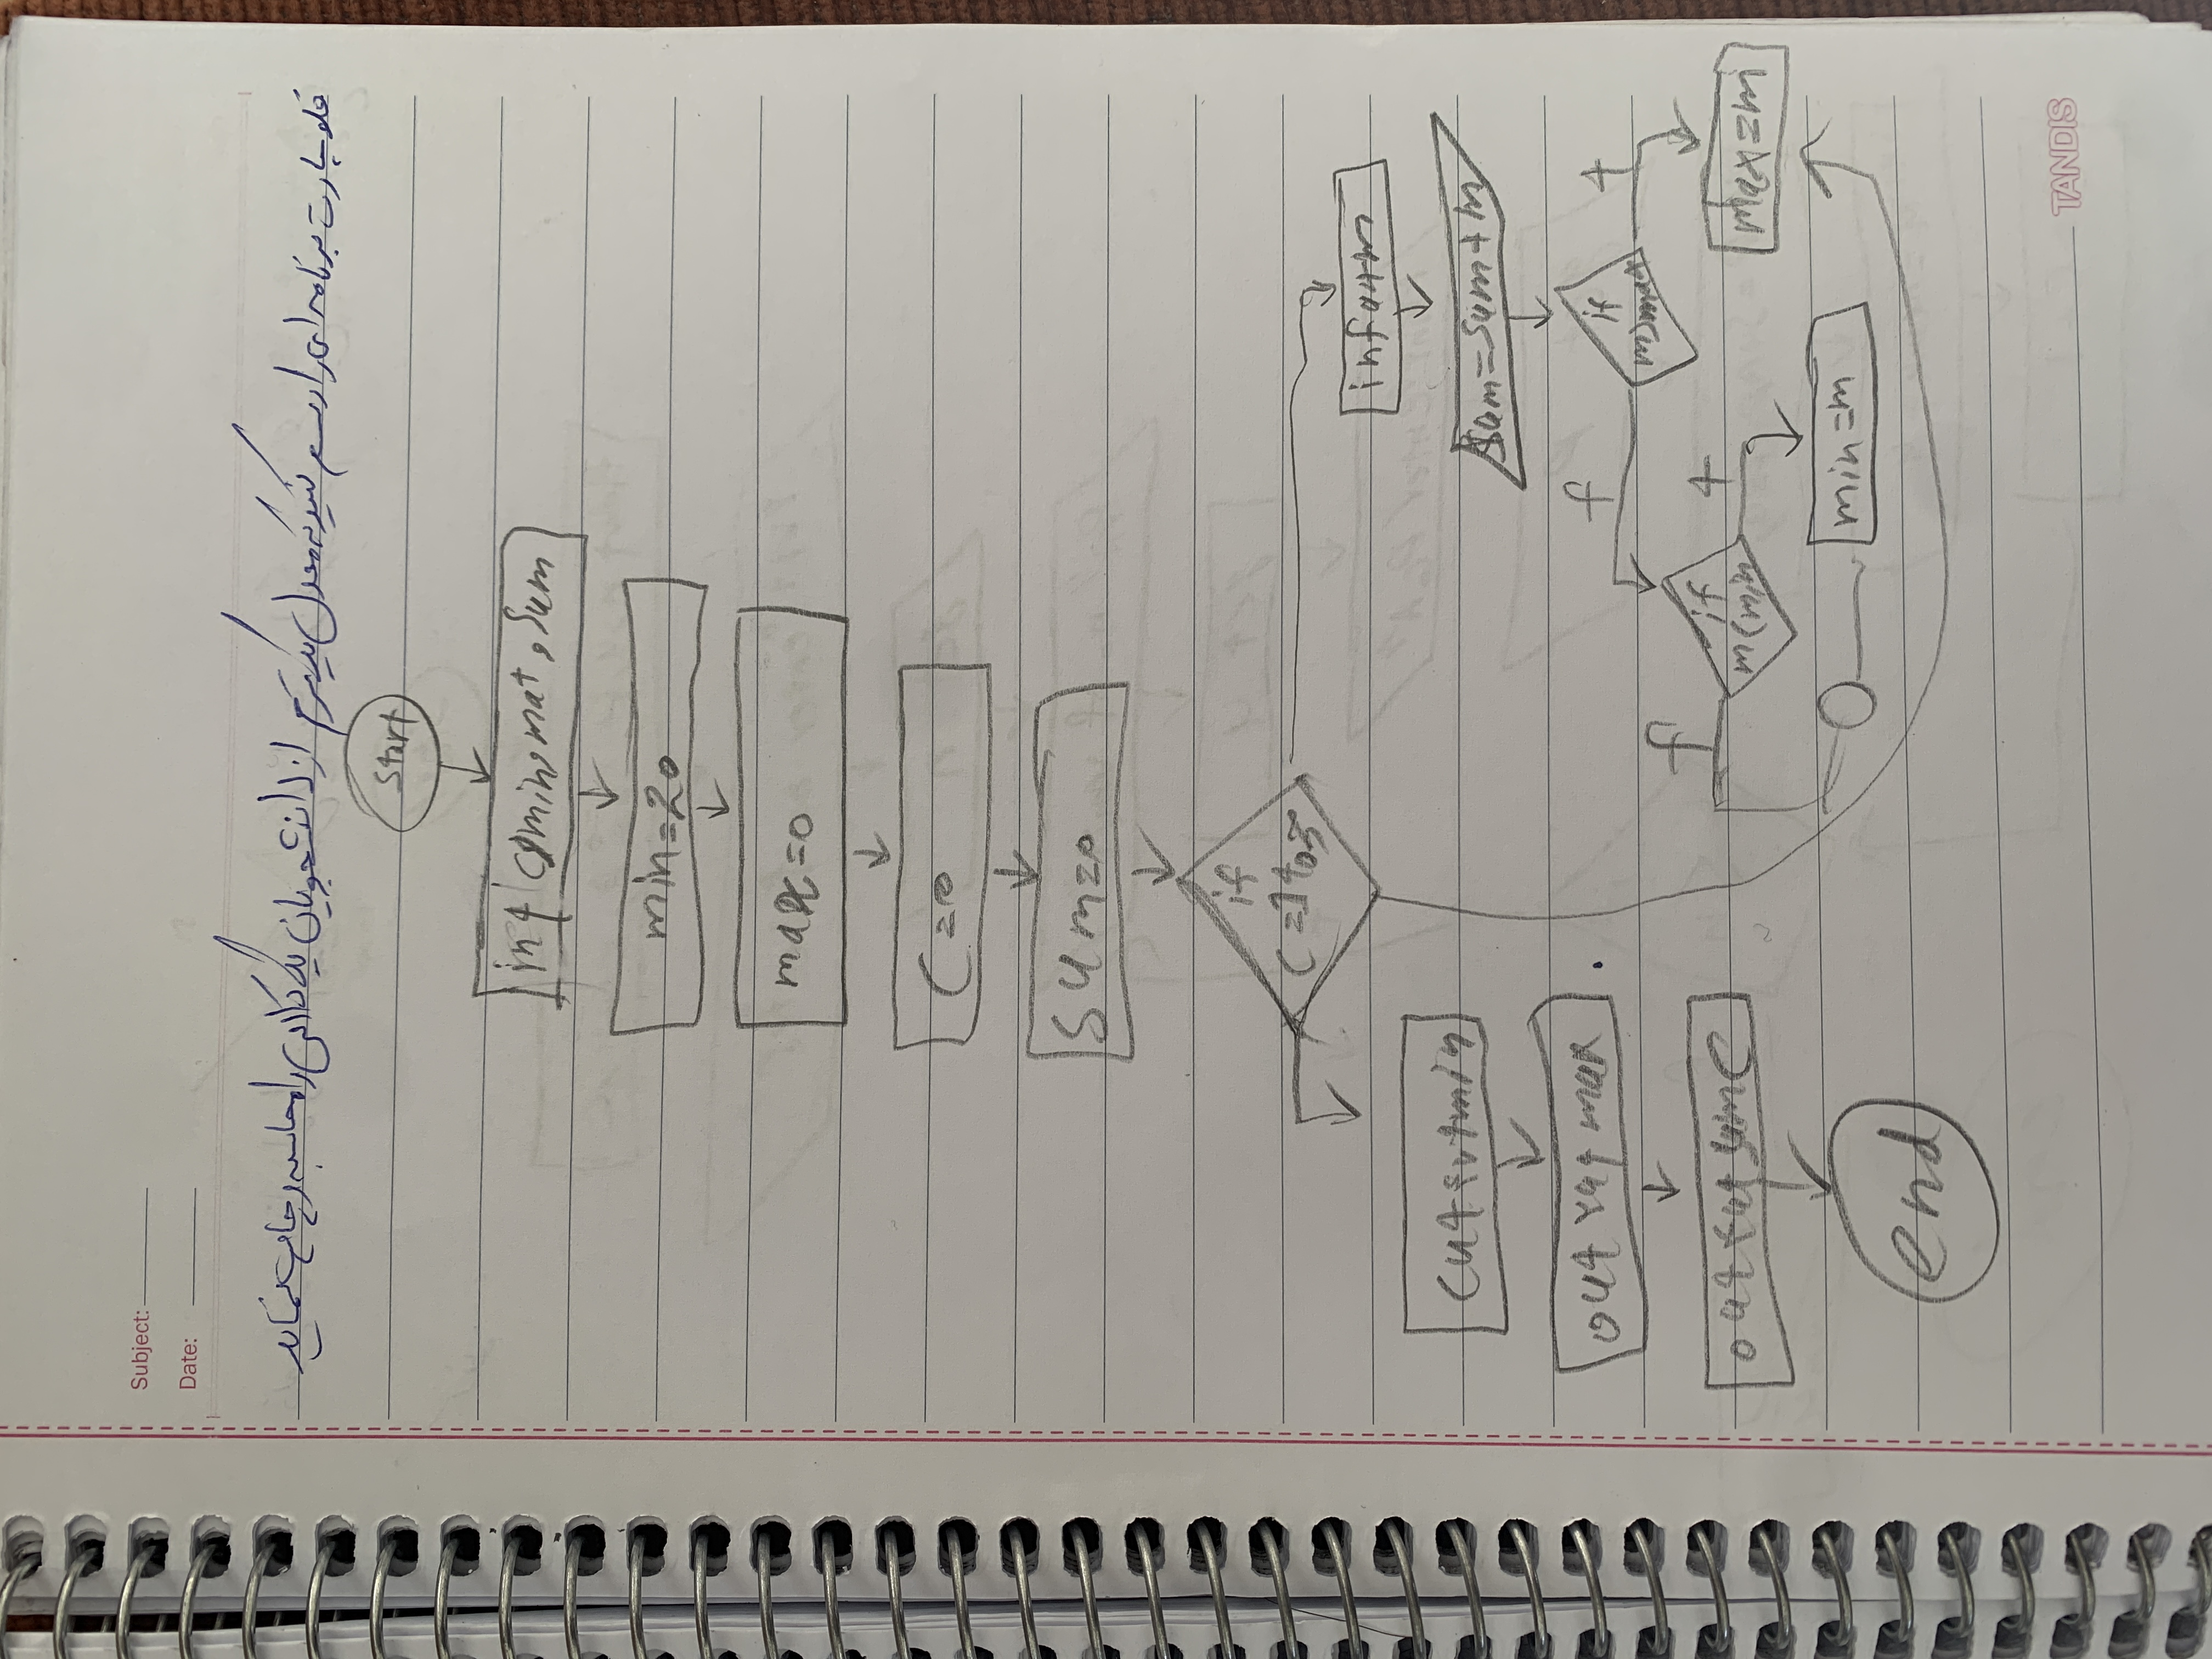 Subject:
Date:
فلوچارت برنامه ای را رسم کنید که معدل یک ترم از دانشجویان یک کلاس را محاسبه و چاپ نماید
Start
int c, min, mat, Sum
min=20
max=0
C=0
Sum=0
if
C=1 to
m
Sum=Sum+m
if
f
t
out max
if
m<min
f
t
max=m
out sum C
min=m
end
TANDIS